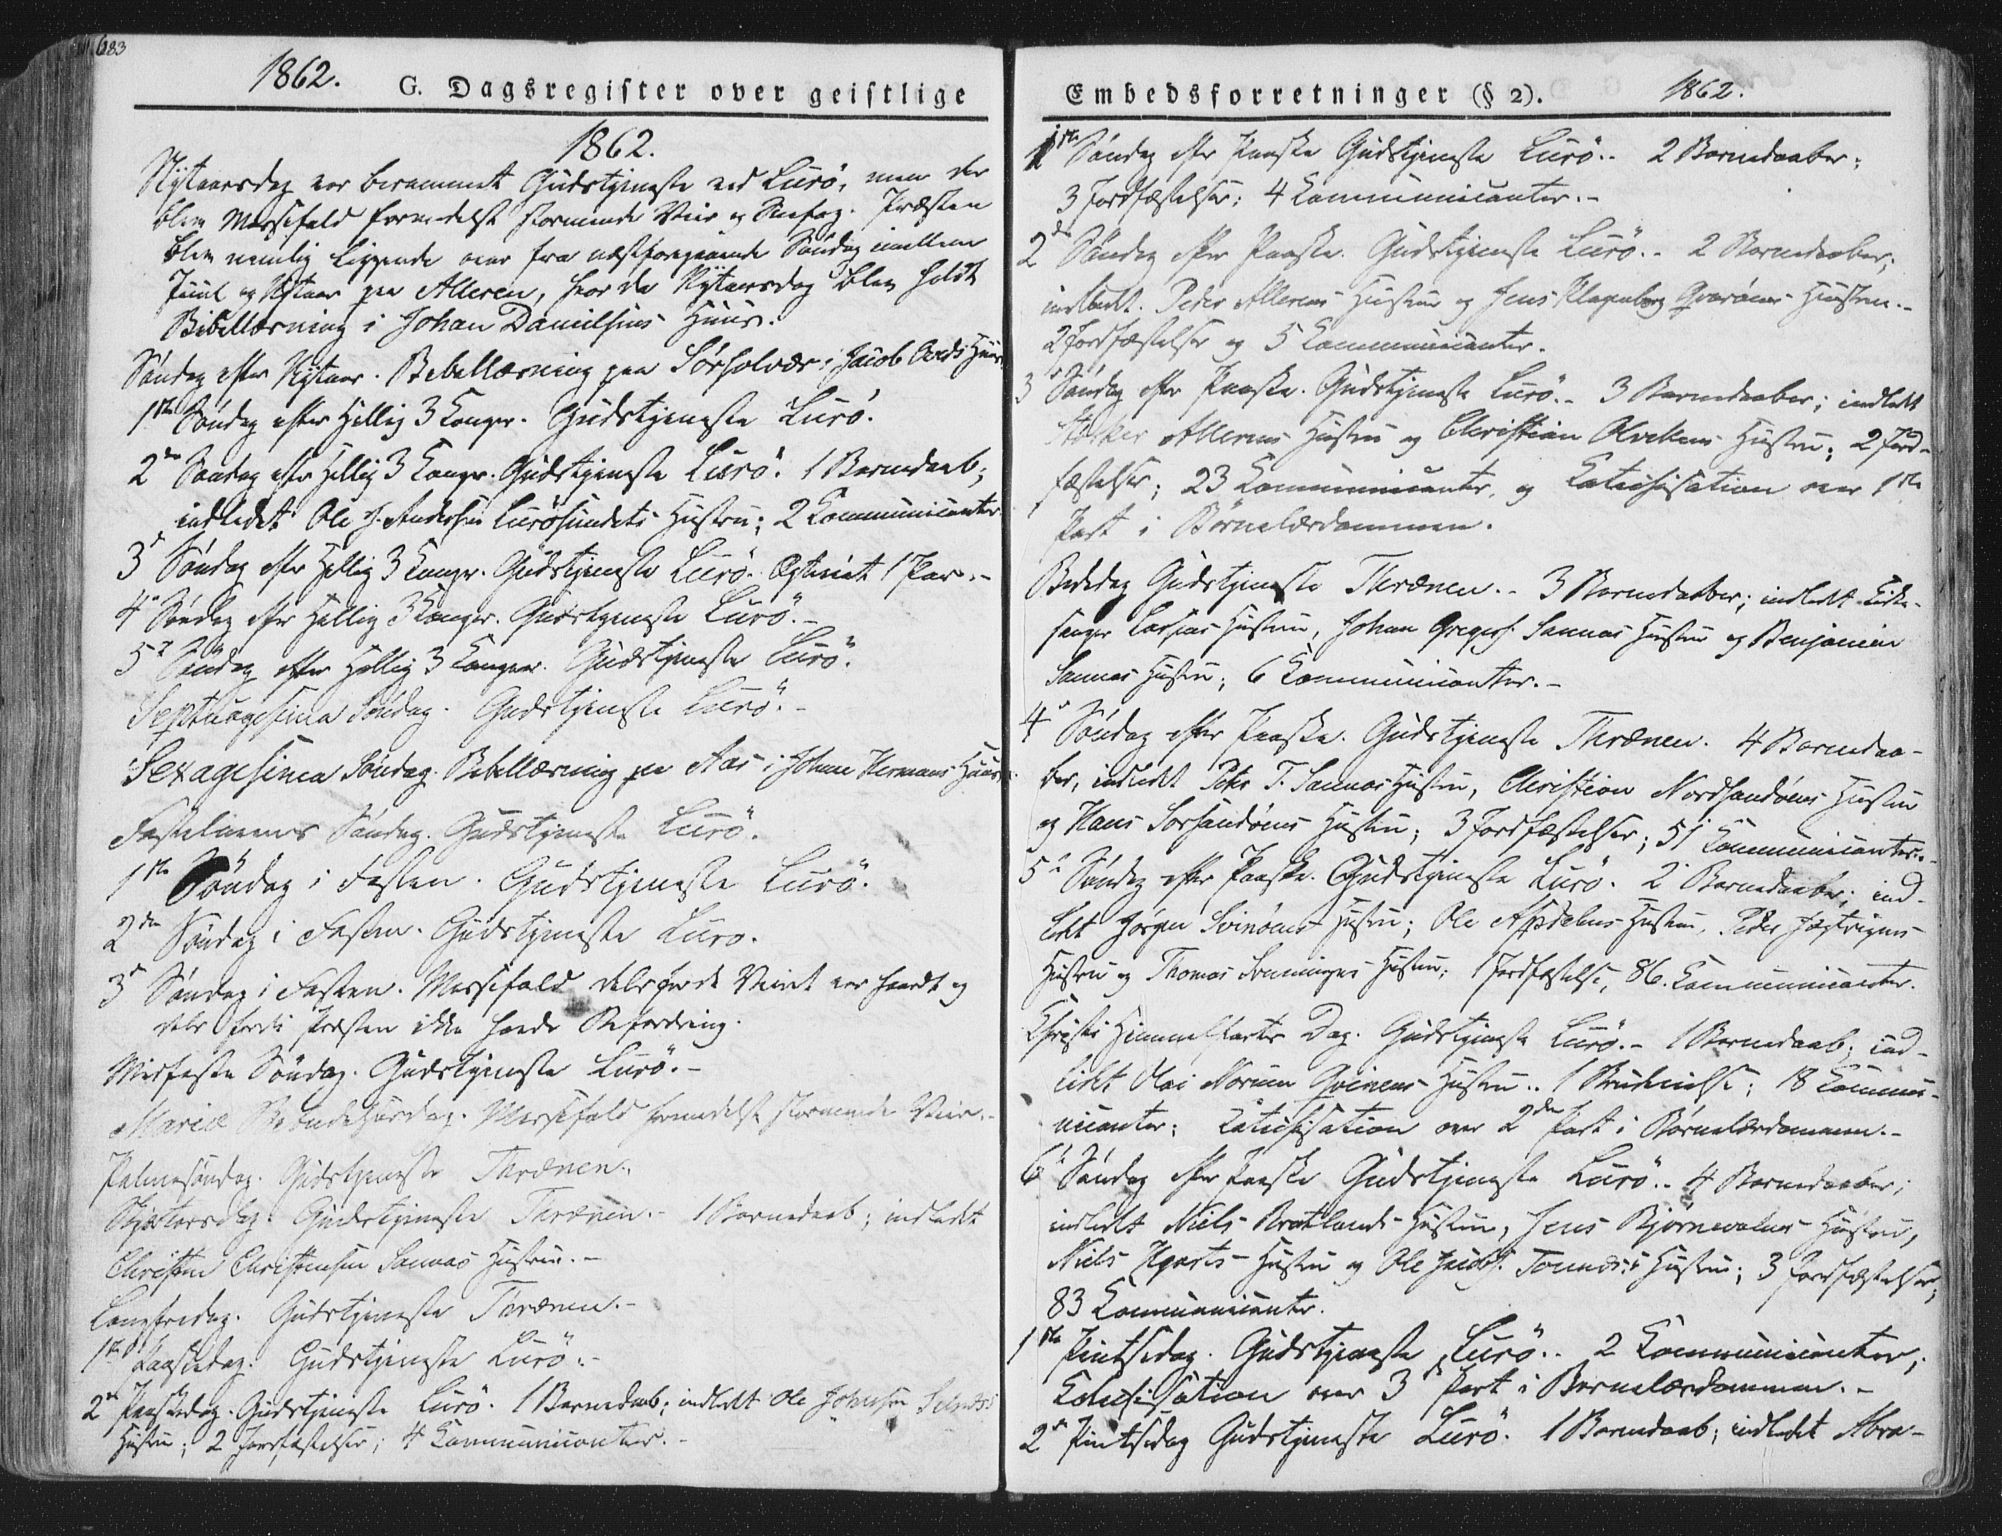 683
1862.
G. Dagsregister over geistlige
1862.
Nytaarsdag var berammet Gudstjeneste ved Lurö, men der
blev Messefald formedelst stormende Veir og Snefog. Præsten
blev nemlig liggende over fra næstforegaaende Søndag imellem
Juul og Nytaar paa Alleren, hvor da Nytaarsdag blev holdt
Bibellæsning i Johan Danielsens Huus.
Søndag efter Nytaar. Bibellæsning paa Sørsolvær i Jacob Huus
1ste Søndag efter Hellig 3 Konger. Gudstjeneste Lurö.
2den Søndag efter Hellig 3 Konger. Gudstjeneste Lurö. 1 Barnedaab;
indledet Ole J. Andersen Lurösundets Hustru; 2 Kommunicanter
3die Søndag efter Hellig 3 Konger. Gudstjeneste Lurö. Ægteviet 1 Par.-
4de Søndag efter Hellig 3 Konger. Gudstjeneste Lurö.-
5te Søndag efter Hellig 3 Konger. Gudstjeneste Lurö.
Septuagesima Søndag. Gudstjeneste Lurö.-
Sexagesima Søndag. Bibellæsning paa Aas i Johan Hermans Huus.
Fastelavens Søndag. Gudstjeneste Lurö.
1ste Søndag i Fasten. Gudstjeneste Lurö.
2den Søndag i Fasten. Gudstjeneste Lurö.
3die Søndag i Fasten. Messefald dels fordi Veiret var haardt og
dels fordi Præsten ikke havde Befordring.
Midfaste Søndag. Gudstjeneste Lurö.-
Mariæ Bebudelsesdag. Messefald formedelst stormende Veir.-
Palmesøndag. Gudstjeneste Thrænen.
Skjærtorsdag. Gudstjeneste Thrænen.- 1 Barnedaab; indledet
Christen Christensen Sannas Hustru.-
Langfredag. Gudstjeneste Thrænen.-
1ste Paaskedag. Gudstjeneste Lurö.-
2den Paaskedag. Gudstjeneste Lurö. 1 Barnedaab; indledet Ole Johnsen
Hustru; 2 Jordfæstelser; 4 Kommunicanter.-
Embedsforretninger (§ 2).
1862.
1ste Søndag efter Paaske Gudstjeneste Lurö.- 2 Barnedaaber;
3 Jordfæstelser; 4 Kommunicanter.-
2den Søndag efter Paaske. Gudstjeneste Lurö.- 2 Barnedaaber;
indledet Peder Allerens Hustru og Jens Klagenberg Hustru.-
2 Jordfæstelser og 5 Kommunicanter.
3die Søndag efter Paaske. Gudstjeneste Lurö.- 3 Barnedaaber; indledet
Allerens Hustru og Christian Hustru; 2 Jord-
fæstelser; 23 Kommunicanter, og Katechisation over 1ste
Part i Børnelærdommen.
Bededag Gudstjeneste Thrænen.- 3 Barnedaaber; indledet Kirke-
sanger Hustru, Johan Gregers. Sannas Hustru og Benjamin
Sannas Hustru; 6 Kommunicanter.-
4de Søndag efter Paaske. Gudstjeneste Thrænen. 4 Barnedaa-
ber, indledet Peder T. Sannas Hustru, Christian Nordsandøens Hustru
og Hans Sørsandøens Hustru; 3 Jordfæstelser; 51 Kommunicanter.-
5te Søndag efter Paaske. Gudstjeneste Lurö. 2 Barnedaaber; ind-
ledet Jørgen Svinøens Hustru; Ole Hustru, Peder
Hustru og Thomas Hustru; 1 Jordfæstelse, 86. Kommunicanter.
Christi Himmelfarts Dag. Gudstjeneste Lurö.- 1 Barnedaab; ind-
ledet Hustru.. 1 Brudevielse; 18 Kommu-
nicanter; Katechisation over 2den Part i Børnelærdommen.-
6te Søndag efter Paaske Gudstjeneste Lurö.. 4 Barnedaaber;
indledet Niels Bratlands Hustru, Jens Hustru,
Niels Hjarts Hustru og Ole Jacobs. Hustru; 3 Jordfæstelser;
83 Kommunicanter.
1ste Pintsedag. Gudstjeneste Lurö.. 2 Kommunicanter,
Katechisation over 3die Part i Børnelærdommen.-
2den Pintsedag Gudstjeneste Lurö. 1 Barnedaab; indledet Abra-